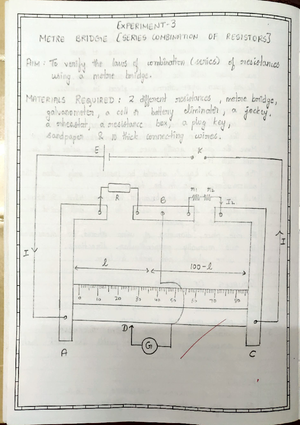 EXPERIMENT-3
METRE BRIDGE [SERIES COMBINATION OF RESISTORS]
AIM: To verify the laws of combination (series) of resistances
using a metre bridge.
MATERIALS REQUIRED: 2 different resistances, metre bridge,
galvanometer, a cell or battery eliminator, a jockey,
a rheostat, a resistance box, a plug key,
sandpaper & thick connecting wires.
E K
R B r1 r2 I2
I I
l c 100-l
0 10 20 30 40 50 60 70 80 90
D
G
A C